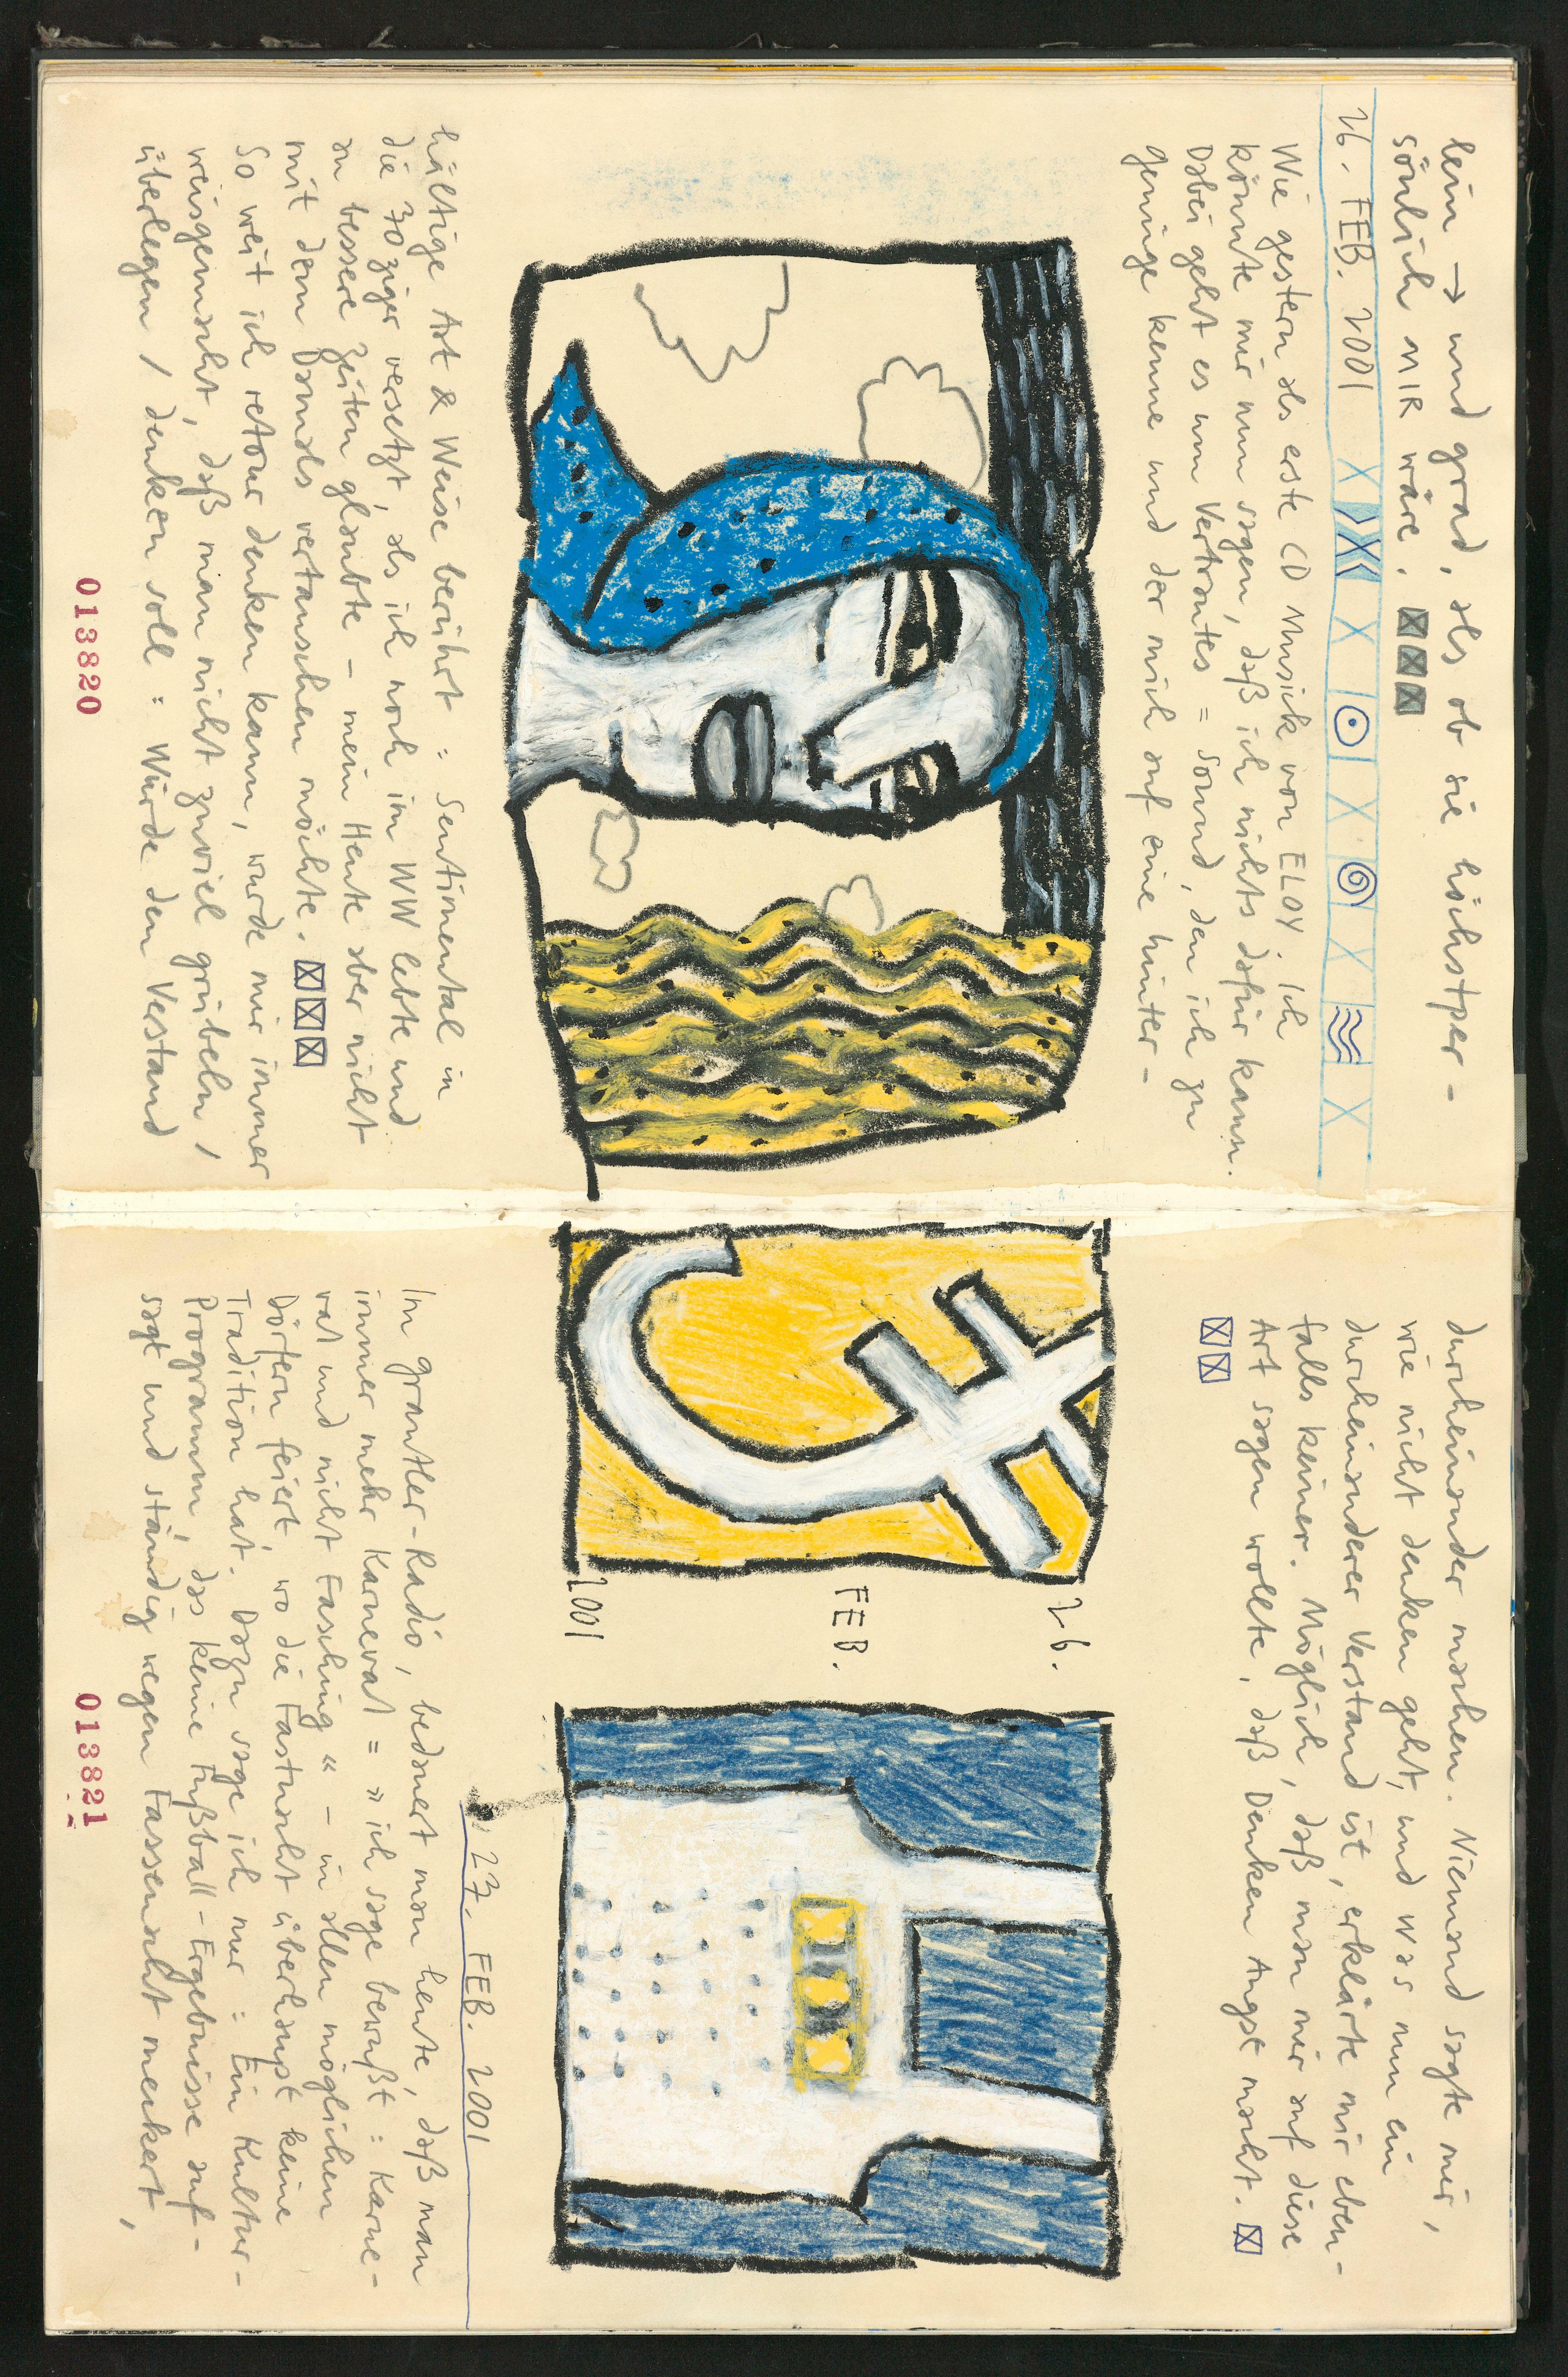 lein → und grad, als ob sie höchstper-
sönlich MIR wäre.
26. FEB. 2001
Wie gestern als erste CD Musick von ELOY. Ich
könnte mir nun sagen, daß ich nichts dafür kann.
Dabei geht es um Vertrautes = Sound, den ich zu
genüge kenne und der mich auf eine hinter-
hältige Art & Weise berührt : Sentimental in
die 70ziger versetzt, als ich noch im WW lebte und
an bessere Zeiten glaubte – mein Heute aber nicht
mit dem Damals vertauschen möchte.
So weit ich retour denken kann, wurde mir immer
weisgemacht, daß man nicht zuviel grübeln /
überlegen / denken soll : Würde den Verstand
013820
durcheinander machen. Niemand sagte mir,
wie nicht denken geht, und was nun ein
durcheinanderer Verstand ist, erklärte mir eben-
falls keiner. Möglich, daß man mir auf diese
Art sagen wollte, daß Denken Angst macht.
26.
FEB.
2001
27. FEB. 2001
Im grantler-Radio, bedauert man heute, daß man
immer mehr Karneval = » ich sage bewußt : Karne-
val und nicht Fasching « – in allen möglichen
Dörfern feiert, wo die Fastnacht überhaupt keine
Tradition hat. Dazu sage ich nur : Ein Kultur-
Programm, das keine Fußball-Ergebnisse auf-
sagt und ständig wegen Fassenacht meckert,
013821